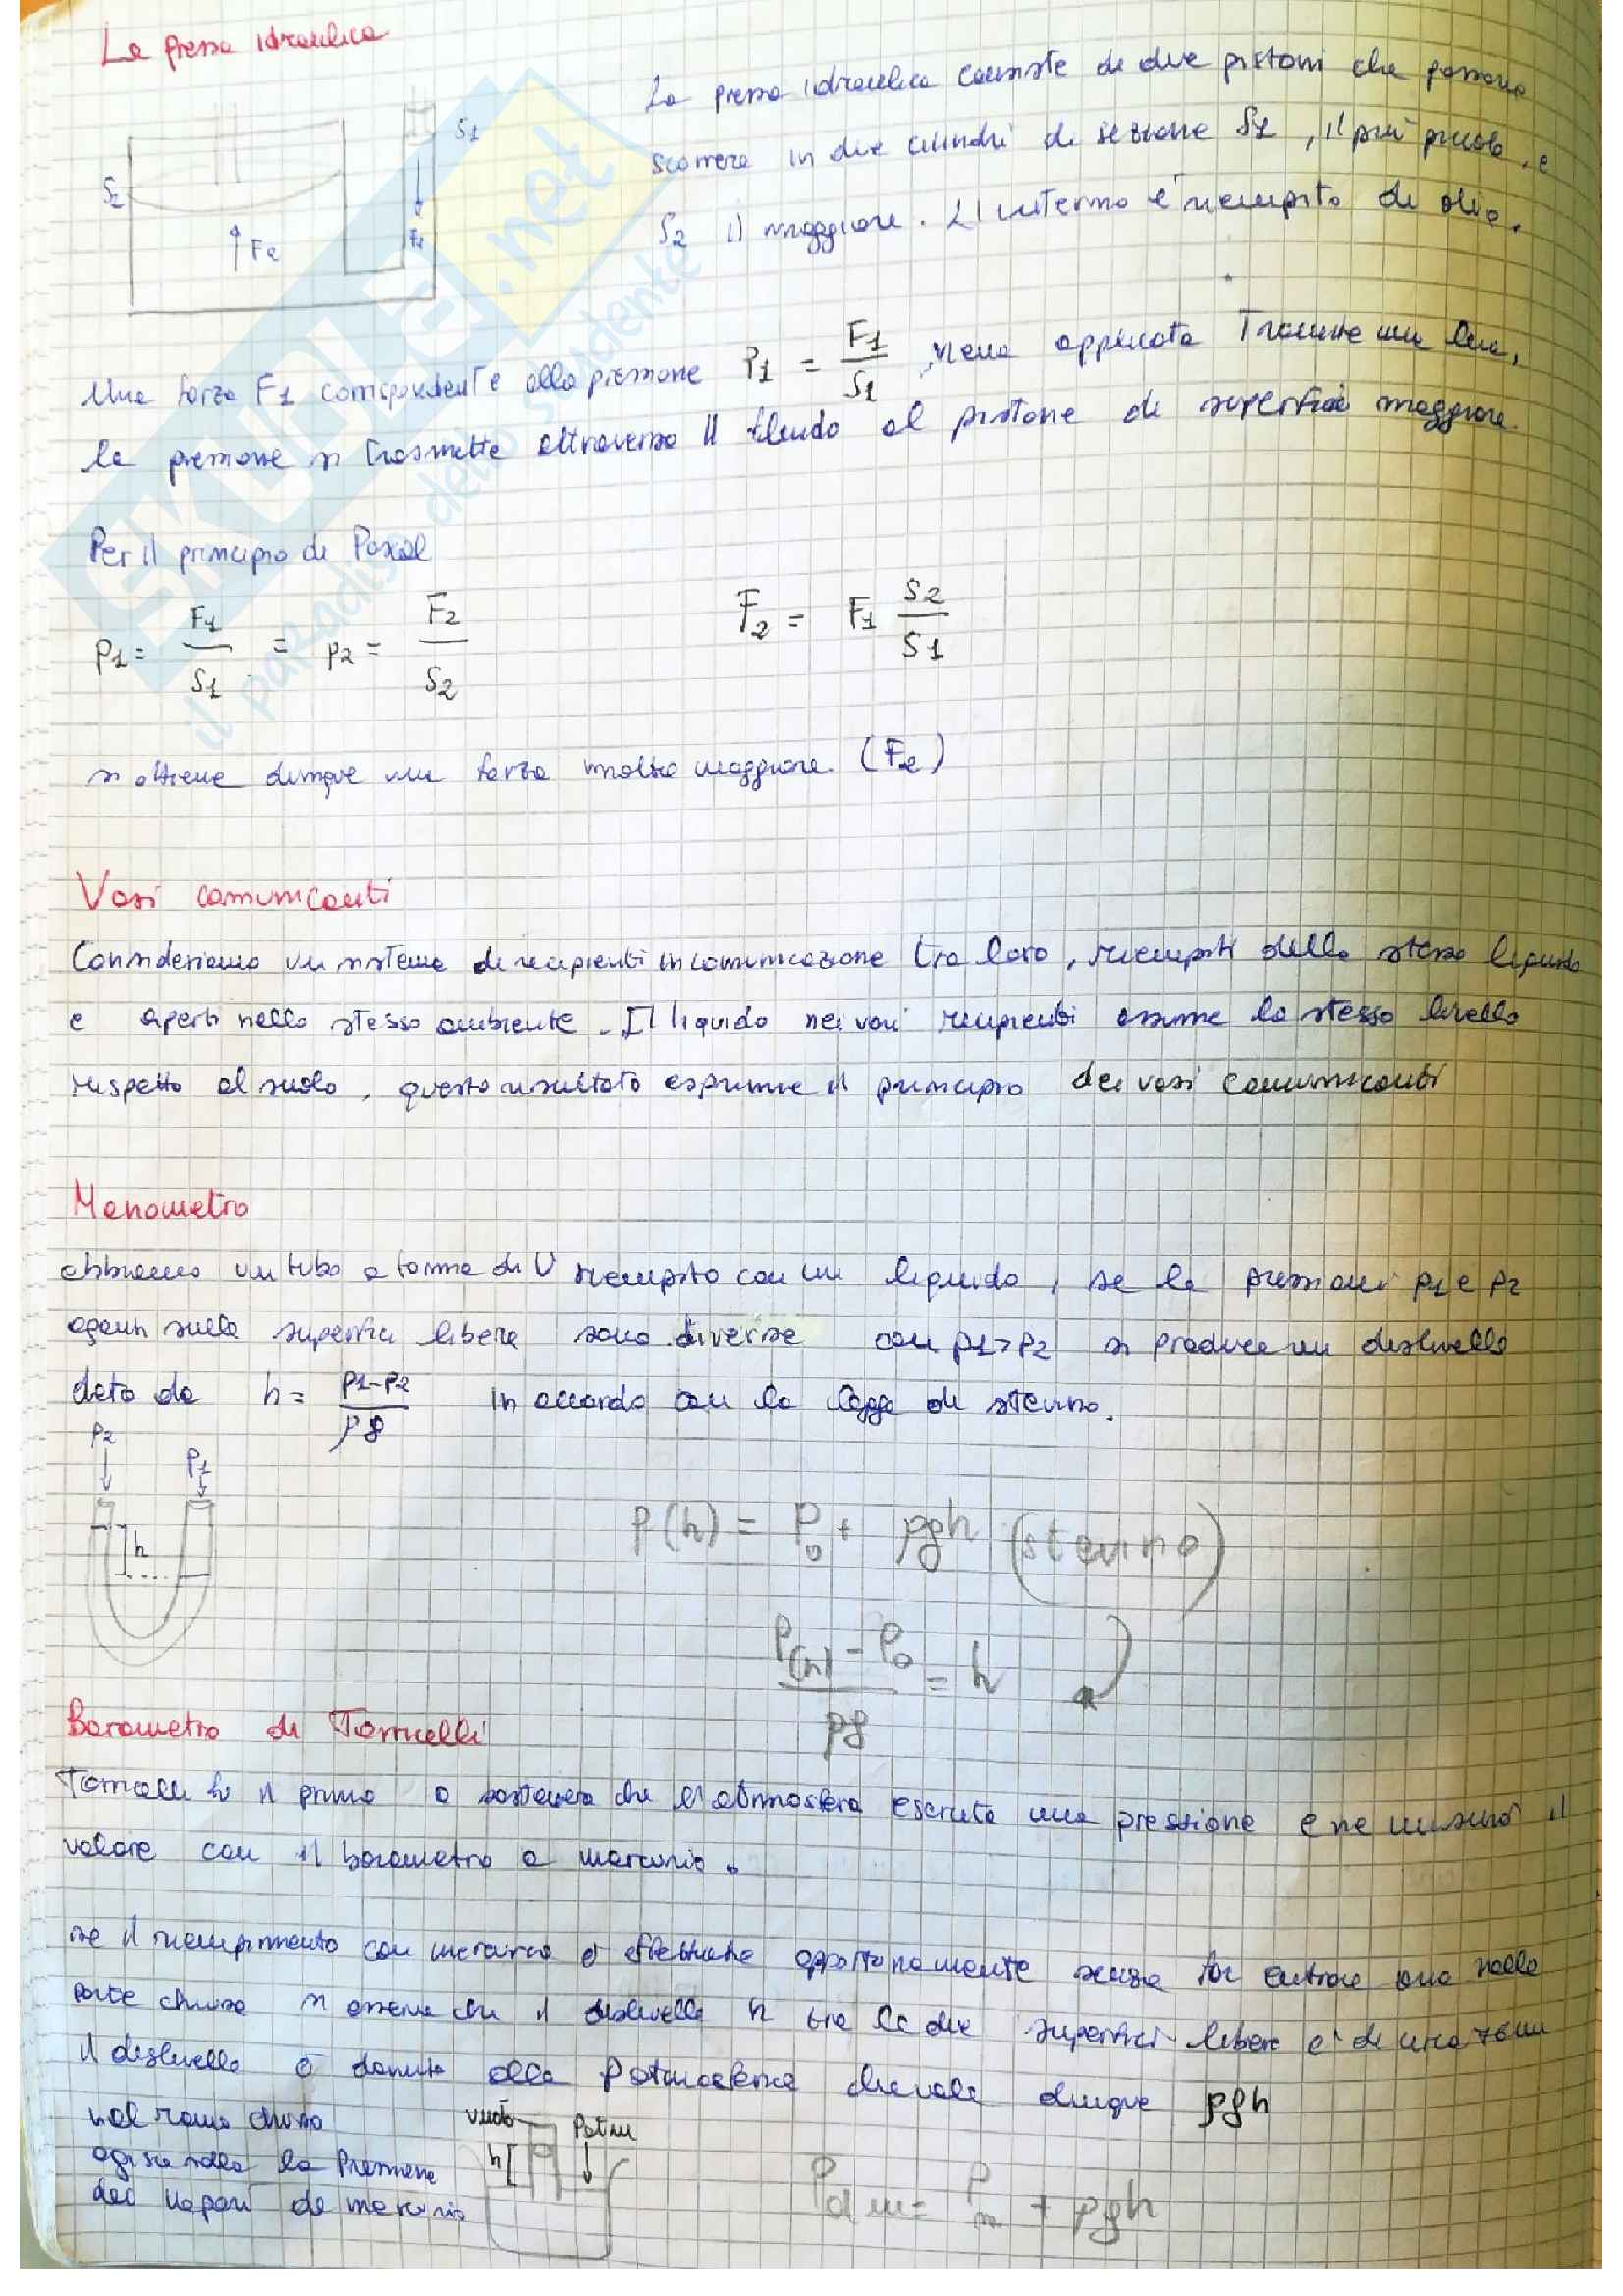 La pressa idraulica
La pressa idraulica consiste di due pistoni che possono
scorrere in due cilindri di sezione S1, il più piccolo, e
S2 il maggiore. L'interno è riempito di olio.
S1
S2
F2
F1
Una forza F1 corrispondente alla pressione P1 = F1/S1, viene applicata Tramite una leva,
la pressione si trasmette attraverso il fluido al pistone di superficie maggiore.
Per il principio di Pascal
P1 = F1/S1 = p2 = F2/S2    F2 = F1 S2/S1
si ottiene dunque una forza molto maggiore. (F2)
Vasi comunicanti
Consideriamo un sistema di recipienti in comunicazione tra loro, riempiti dello stesso liquido
e aperti nello stesso ambiente. Il liquido nei vari recipienti assume lo stesso livello
rispetto al suolo, questo risultato esprime il principio dei vasi comunicanti
Manometro
abbiamo un tubo a forma di U riempito con un liquido, se le pressioni p1 e p2
agenti sulle superfici libere sono diverse con p1>p2 si produce un dislivello
dato da h = p1-p2/ρg in accordo con la legge di stevino.
P2
P1
h
P(h) = P0 + ρgh (stevino)
P(h) - P0/ρg = h
Barometro di Torricelli
Torricelli fu il primo a sostenere che l'atmosfera esercita una pressione e ne misurò il
valore con il barometro a mercurio.
se il riempimento con mercurio è effettuato opportunamente senza far entrare aria nella
parte chiusa si osserva che il dislivello h tra le due superfici libere è di circa 76cm
il dislivello è dovuto alla Patmosferica che vale dunque ρgh
nel ramo chiuso
agisce solo la Pressione
dei vapori di mercurio
vuoto
Patm
h
Patm = Pm + ρgh
SKUOLA.net
il paradiso dello studente